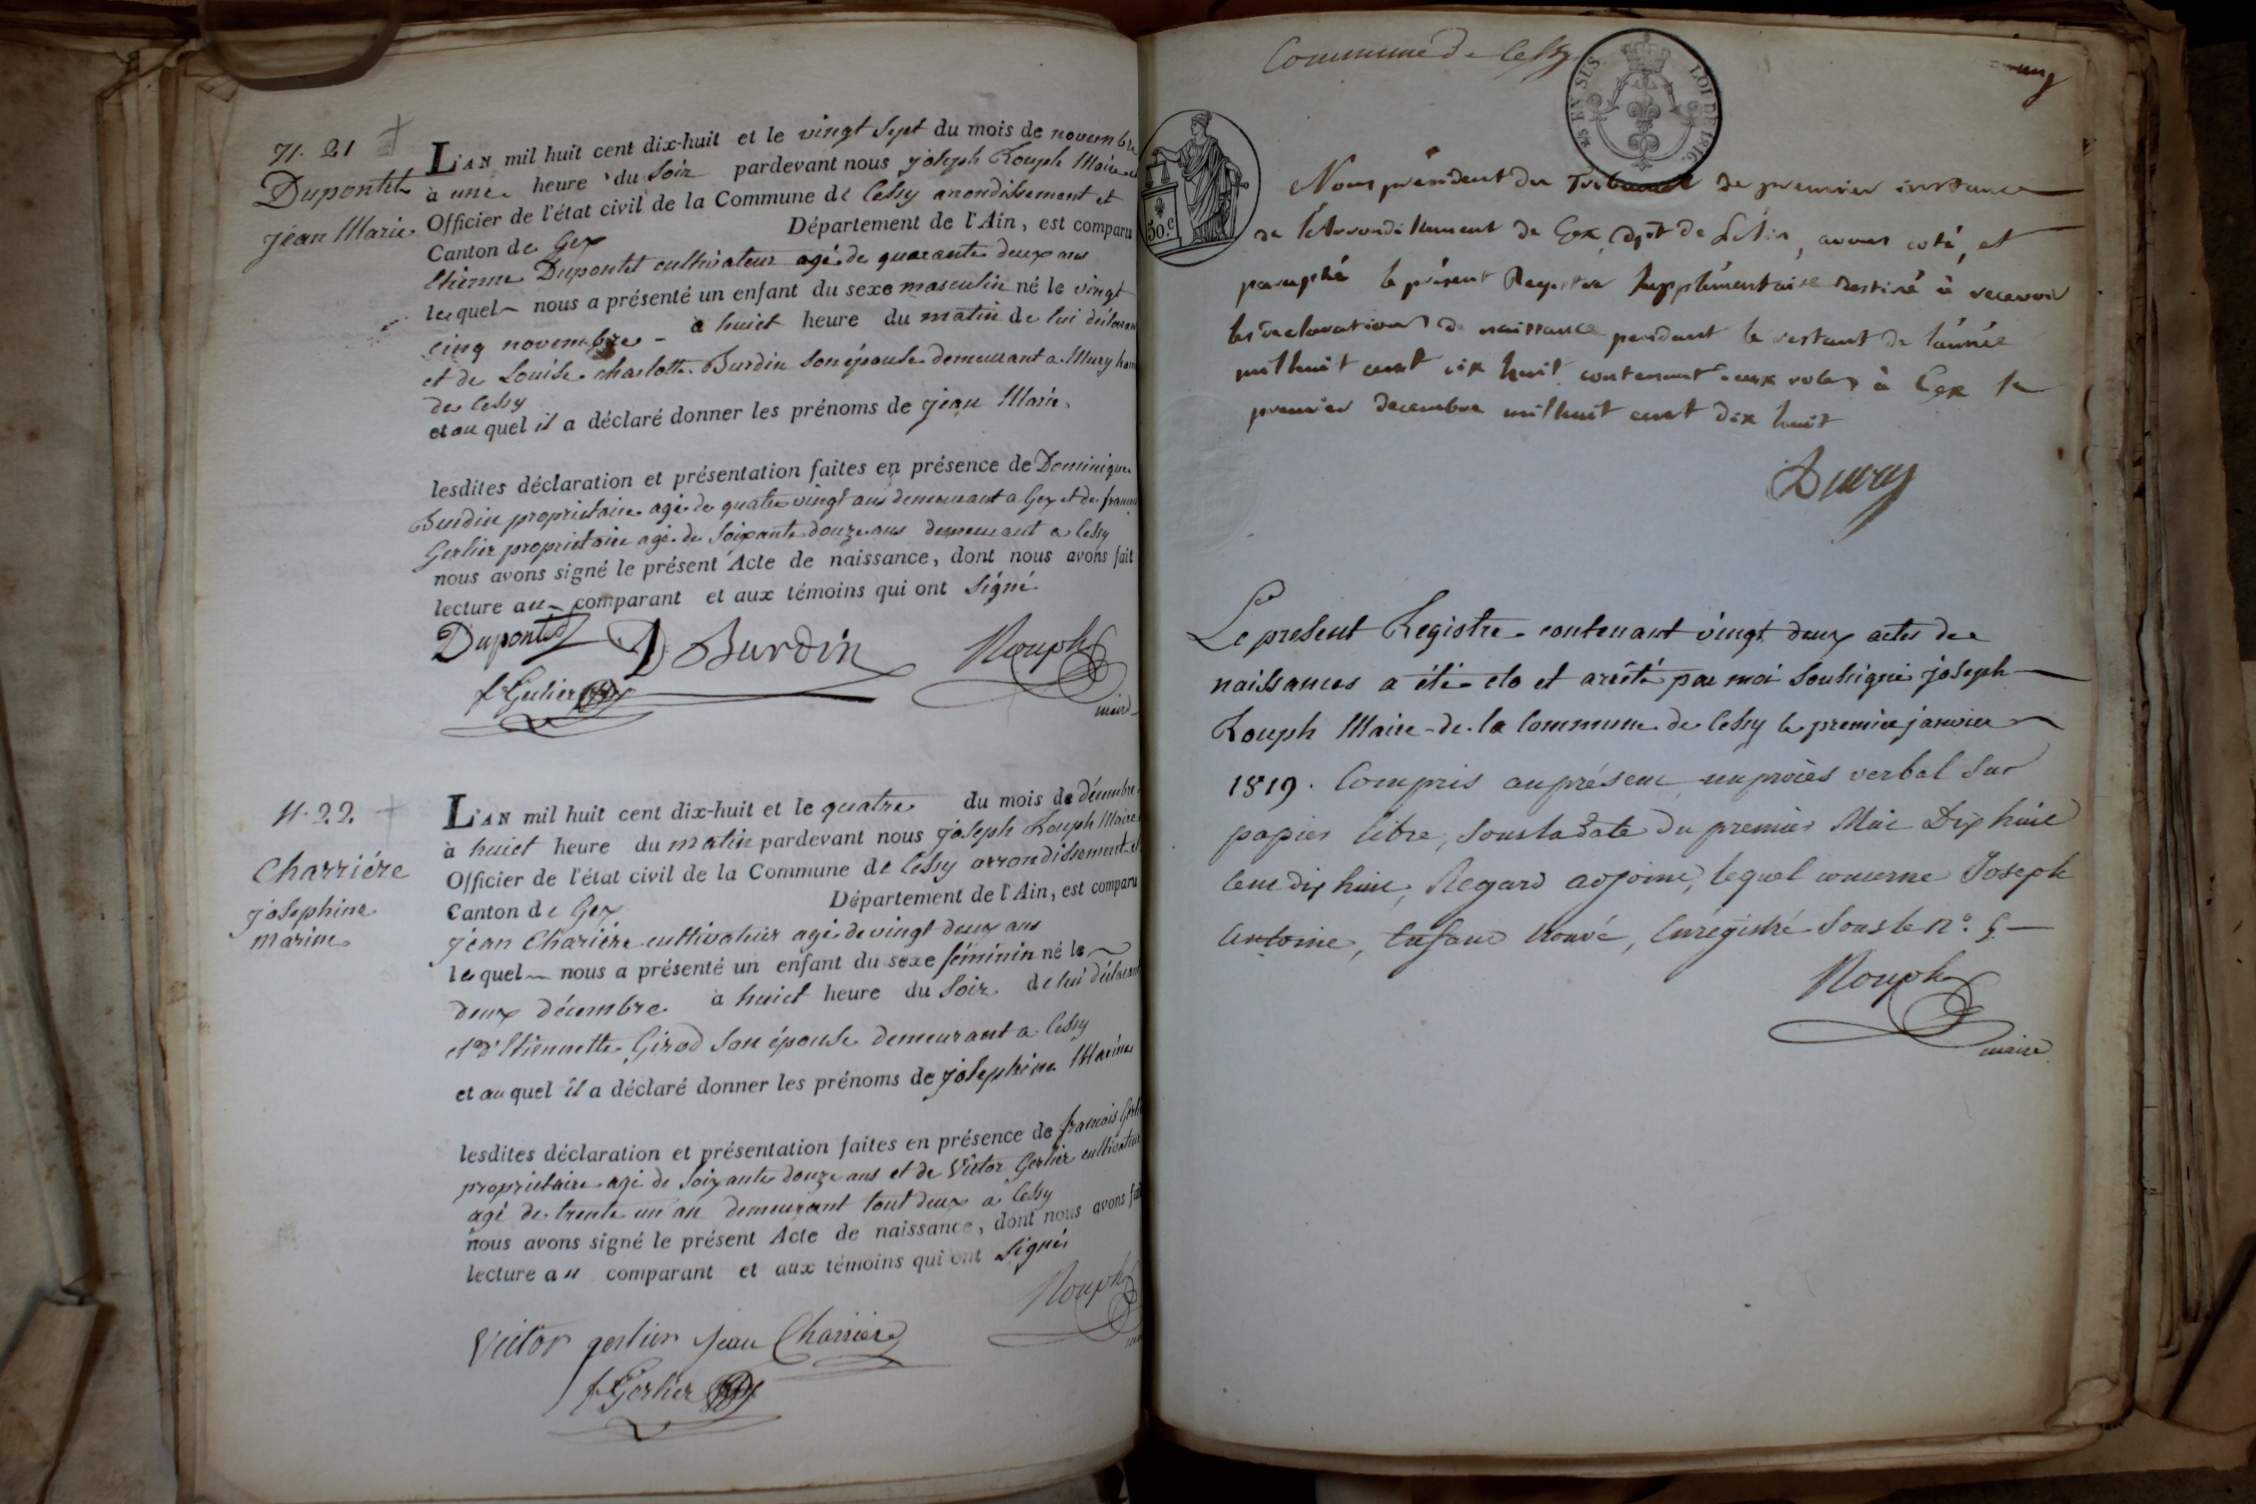 N. 21
Dupontet
jean Marie
L'AN mil huit cent dix-huit et le vingt sept du mois de novembre
à une heure du soir pardevant nous joseph Rouph Maire et
Officier de l'état civil de la Commune de Cessy arrondissement et
Canton de Gex Département de l'Ain, est comparu
Etienne Dupontet cultivateur agé de quarante deux ans
lequel nous a présenté un enfant du sexe masculin né le vingt
cinq novembre à huict heure du matin de lui déclarant
et de Louise charlotte Burdin son épouse demeurant a Mury ham
de Cessy
et au quel il a déclaré donner les prénoms de jean Marie
lesdites déclaration et présentation faites en présence de Dominique
Burdin proprietaire agé de quatre vingt ans demeurant a Gex et de francois
Gerlier proprietaire agé de soixante douze ans demeurant a Cessy
nous avons signé le présent Acte de naissance, dont nous avons fait
lecture au comparant et aux témoins qui ont signé
Dupontet D Burdin Rouph
f Gerlier maire
N. 22
Charriére
josephine
marine
L'AN mil huit cent dix-huit et le quatre du mois de décembre
à huict heure du matin pardevant nous joseph Rouph Maire
Officier de l'état civil de la Commune de Cessy arrondissement et
Canton de Gex Département de l'Ain, est comparu
jean Chariére cultivateur agé de vingt deux ans
lequel nous a présenté un enfant du sexe féminin né le
deux décembre à huict heure du soir de lui déclarant
et d'Etiennette Girod son épouse demeurant a Cessy
et au quel il a déclaré donner les prénoms de josephine Marine
lesdites déclaration et présentation faites en présence de francois Gerlier
proprietaire agé de soixante douze ans et de Victor Gerlier cultivateur
agé de trente un an demeurant tout deux a Cessy
nous avons signé le présent Acte de naissance, dont nous avons fait
lecture au comparant et aux témoins qui ont signés
Rouph
Victor gerlier jean Charriere
f Gerlier
Commune de Cessy
EN SUS LOI DE 1816.
50.c
Nous président du Tribunal de premier instance
de l'Arrondissement de Gex, dpt de L'Ain, avons coté, et
paraphé le présent Registre supplémentaire destiné à recevoir
les déclarations de naissance pendant le restant de l'année
mil huit cent dix huit contenant deux roles à Gex le
premier decembre mil huit cent dix huit
Le present Registre contenant vingt deux actes de
naissances a été clo et arêtté par moi soussigné joseph
Rouph Maire de la Commune de Cessy le premier janvier
1819. Compris au présent un procès verbal sur
papier libre, sous la date du premier Mai Dix huit
cent dix huit, Regard adjoint, lequel concerne Joseph
Antoine, Enfant trouvé, Enrégistré sous le n°. 9.
Rouph
maire